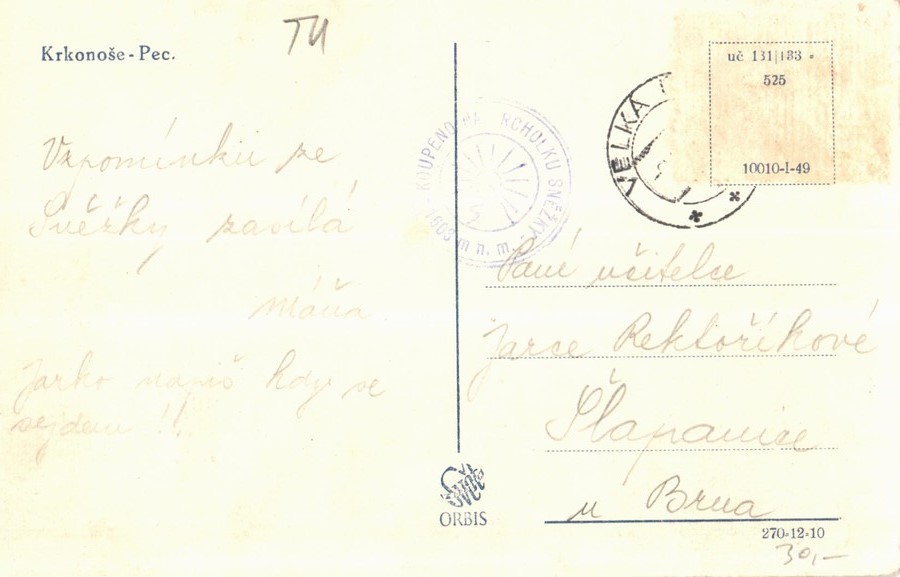 TU
Krkonoše-Pec.
Vzpomínkú ze
Sněžky zasílá
Máňa
Jarko napiš kdy se
sejdem !!
KOUPENO NA RCHOLKU SNĚŽKY
1603 m n. m.
VELKÁ
uč 131|183
525
10010-I-49
Paní učitelce
Jarce Rektoříkové
Šlapanice
u Brna
Svět
ORBIS
270-12-10
30,-